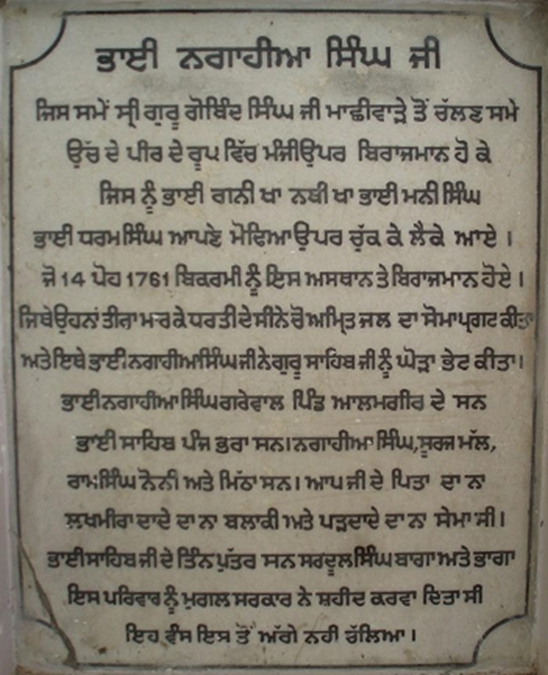 ਭਾਈ ਨਗਾਹੀਆ ਸਿੰਘ ਜੀ
ਜਿਸ ਸਮੇਂ ਸ੍ਰੀ ਗੁਰੂ ਗੋਬਿੰਦ ਸਿੰਘ ਜੀ ਮਾਛੀਵਾੜੇ ਤੋਂ ਚੱਲਣ ਸਮੇ
ਉੱਚ ਦੇ ਪੀਰ ਦੇ ਰੂਪ ਵਿੱਚ ਮੰਜੀ ਉਪਰ ਬਿਰਾਜਮਾਨ ਹੋ ਕੇ
ਜਿਸ ਨੂੰ ਭਾਈ ਗਨੀ ਖਾ ਨਬੀ ਖਾ ਭਾਈ ਮਨੀ ਸਿੰਘ
ਭਾਈ ਧਰਮ ਸਿੰਘ ਆਪਣੇ ਮੋਢਿਆ ਉਪਰ ਚੁੱਕ ਕੇ ਲੈਕੇ ਆਏ ।
ਜੋ 14 ਪੋਹ 1761 ਬਿਕਰਮੀ ਨੂੰ ਇਸ ਅਸਥਾਨ ਤੇ ਬਿਰਾਜਮਾਨ ਹੋਏ ।
ਜਿਥੇ ਉਹਨਾਂ ਤੀਰ ਮਾਰ ਕੇ ਧਰਤੀ ਦੇ ਸੀਨੇ ਚੋ ਅਮ੍ਰਿਤ ਜਲ ਦਾ ਸੋਮਾ ਪ੍ਰਗਟ ਕੀਤਾ
ਅਤੇ ਇਥੇ ਭਾਈ ਨਗਾਹੀਆ ਸਿੰਘ ਜੀ ਨੇ ਗੁਰੂ ਸਾਹਿਬ ਜੀ ਨੂੰ ਘੋੜਾ ਭੇਟ ਕੀਤਾ।
ਭਾਈ ਨਗਾਹੀਆ ਸਿੰਘ ਗਰੇਵਾਲ ਪਿੰਡ ਆਲਮਗੀਰ ਦੇ ਸਨ
ਭਾਈ ਸਾਹਿਬ ਪੰਜ ਭਰਾ ਸਨ। ਨਗਾਹੀਆ ਸਿੰਘ, ਸੂਰਜ ਮੱਲ,
ਰਾਮ ਸਿੰਘ ਨੋਨੀ ਅਤੇ ਮਿੱਠਾ ਸਨ। ਆਪ ਜੀ ਦੇ ਪਿਤਾ ਦਾ ਨਾ
ਲਖਮੀਰਾ ਦਾਦੇ ਦਾ ਨਾ ਬਲਾਕੀ ਅਤੇ ਪੜਦਾਦੇ ਦਾ ਨਾ ਸੇਮਾ ਸੀ।
ਭਾਈ ਸਾਹਿਬ ਜੀ ਦੇ ਤਿੰਨ ਪੁੱਤਰ ਸਨ ਸਰਦੂਲ ਸਿੰਘ ਬਾਗਾ ਅਤੇ ਭਾਗਾ
ਇਸ ਪਰਿਵਾਰ ਨੂੰ ਮੁਗਲ ਸਰਕਾਰ ਨੇ ਸ਼ਹੀਦ ਕਰਵਾ ਦਿਤਾ ਸੀ
ਇਹ ਵੰਸ ਇਸ ਤੋਂ ਅੱਗੇ ਨਹੀ ਚੱਲਿਆ ।